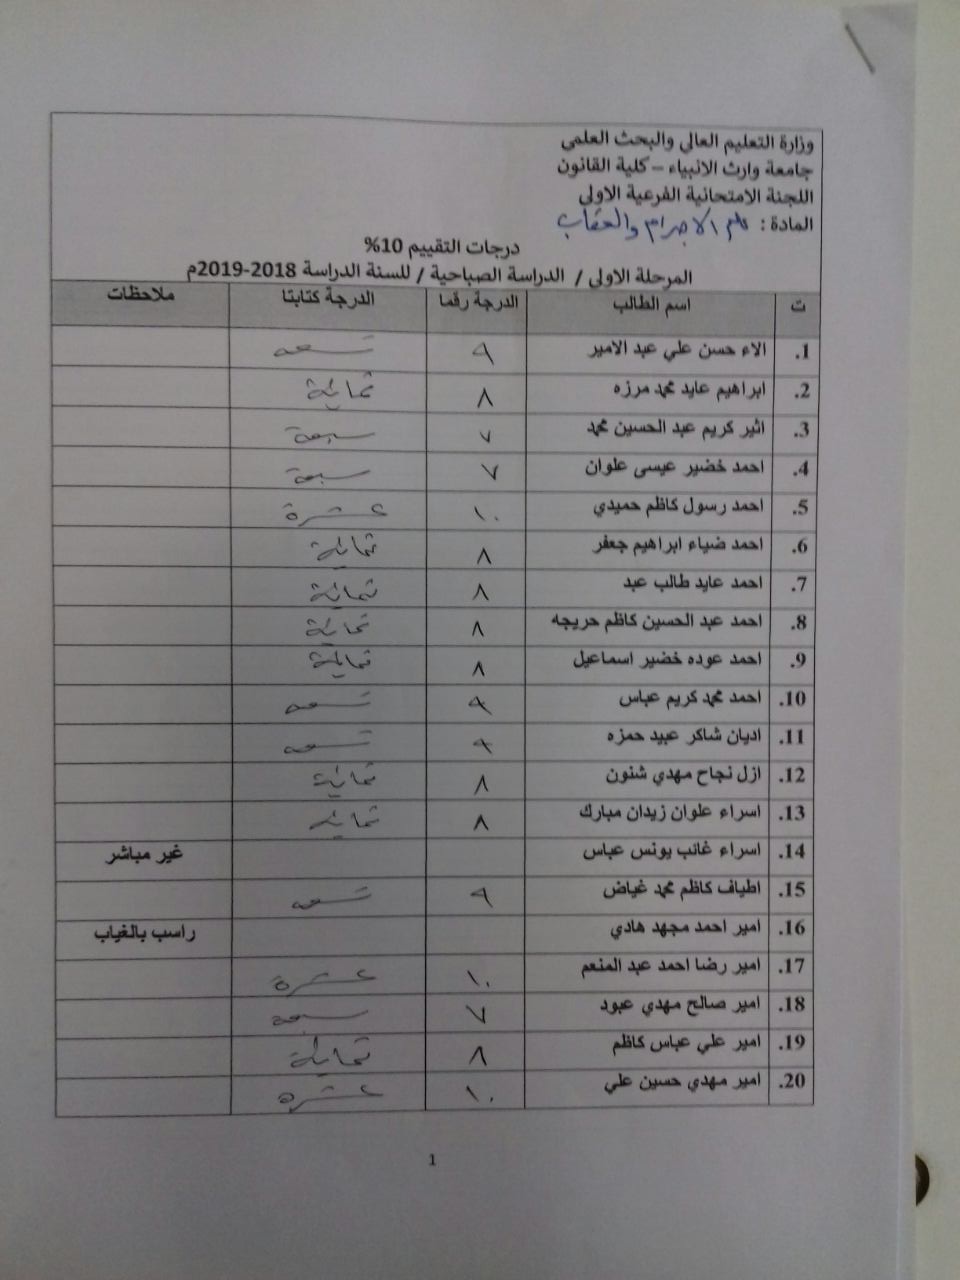 وزارة التعليم العالي والبحث العلمي
جامعة وارث الانبياء – كلية القانون
اللجنة الامتحانية الفرعية الاولى
المادة : علم الاجرام والعقاب
درجات التقييم 10%
المرحلة الاولى / الدراسة الصباحية / للسنة الدراسة 2018-2019م
ت اسم الطالب الدرجة رقما الدرجة كتابتا ملاحظات
1. الاء حسن علي عبد الامير ٩ تسعه
2. ابراهيم عايد محمد مرزه ٨ ثمانية
3. اثير كريم عبد الحسين محمد ٧ سبعة
4. احمد خضير عيسى علوان ٧ سبعة
5. احمد رسول كاظم حميدي ١٠ عشرة
6. احمد ضياء ابراهيم جعفر ٨ ثمانية
7. احمد عايد طالب عبد ٨ ثمانية
8. احمد عبد الحسين كاظم حريجه ٨ ثمانية
9. احمد عوده خضير اسماعيل ٨ ثمانية
10. احمد محمد كريم عباس ٩ تسعه
11. اديان شاكر عبيد حمزه ٩ تسعه
12. ازل نجاح مهدي شنون ٨ ثمانية
13. اسراء علوان زيدان مبارك ٨ ثمانيه
14. اسراء غائب يونس عباس غير مباشر
15. اطياف كاظم محمد غياض ٩ تسعه
16. امير احمد مجهد هادي راسب بالغياب
17. امير رضا احمد عبد المنعم ١٠ عشرة
18. امير صالح مهدي عبود ٧ سبعه
19. امير علي عباس كاظم ٨ ثمانية
20. امير مهدي حسين علي ١٠ عشره
1